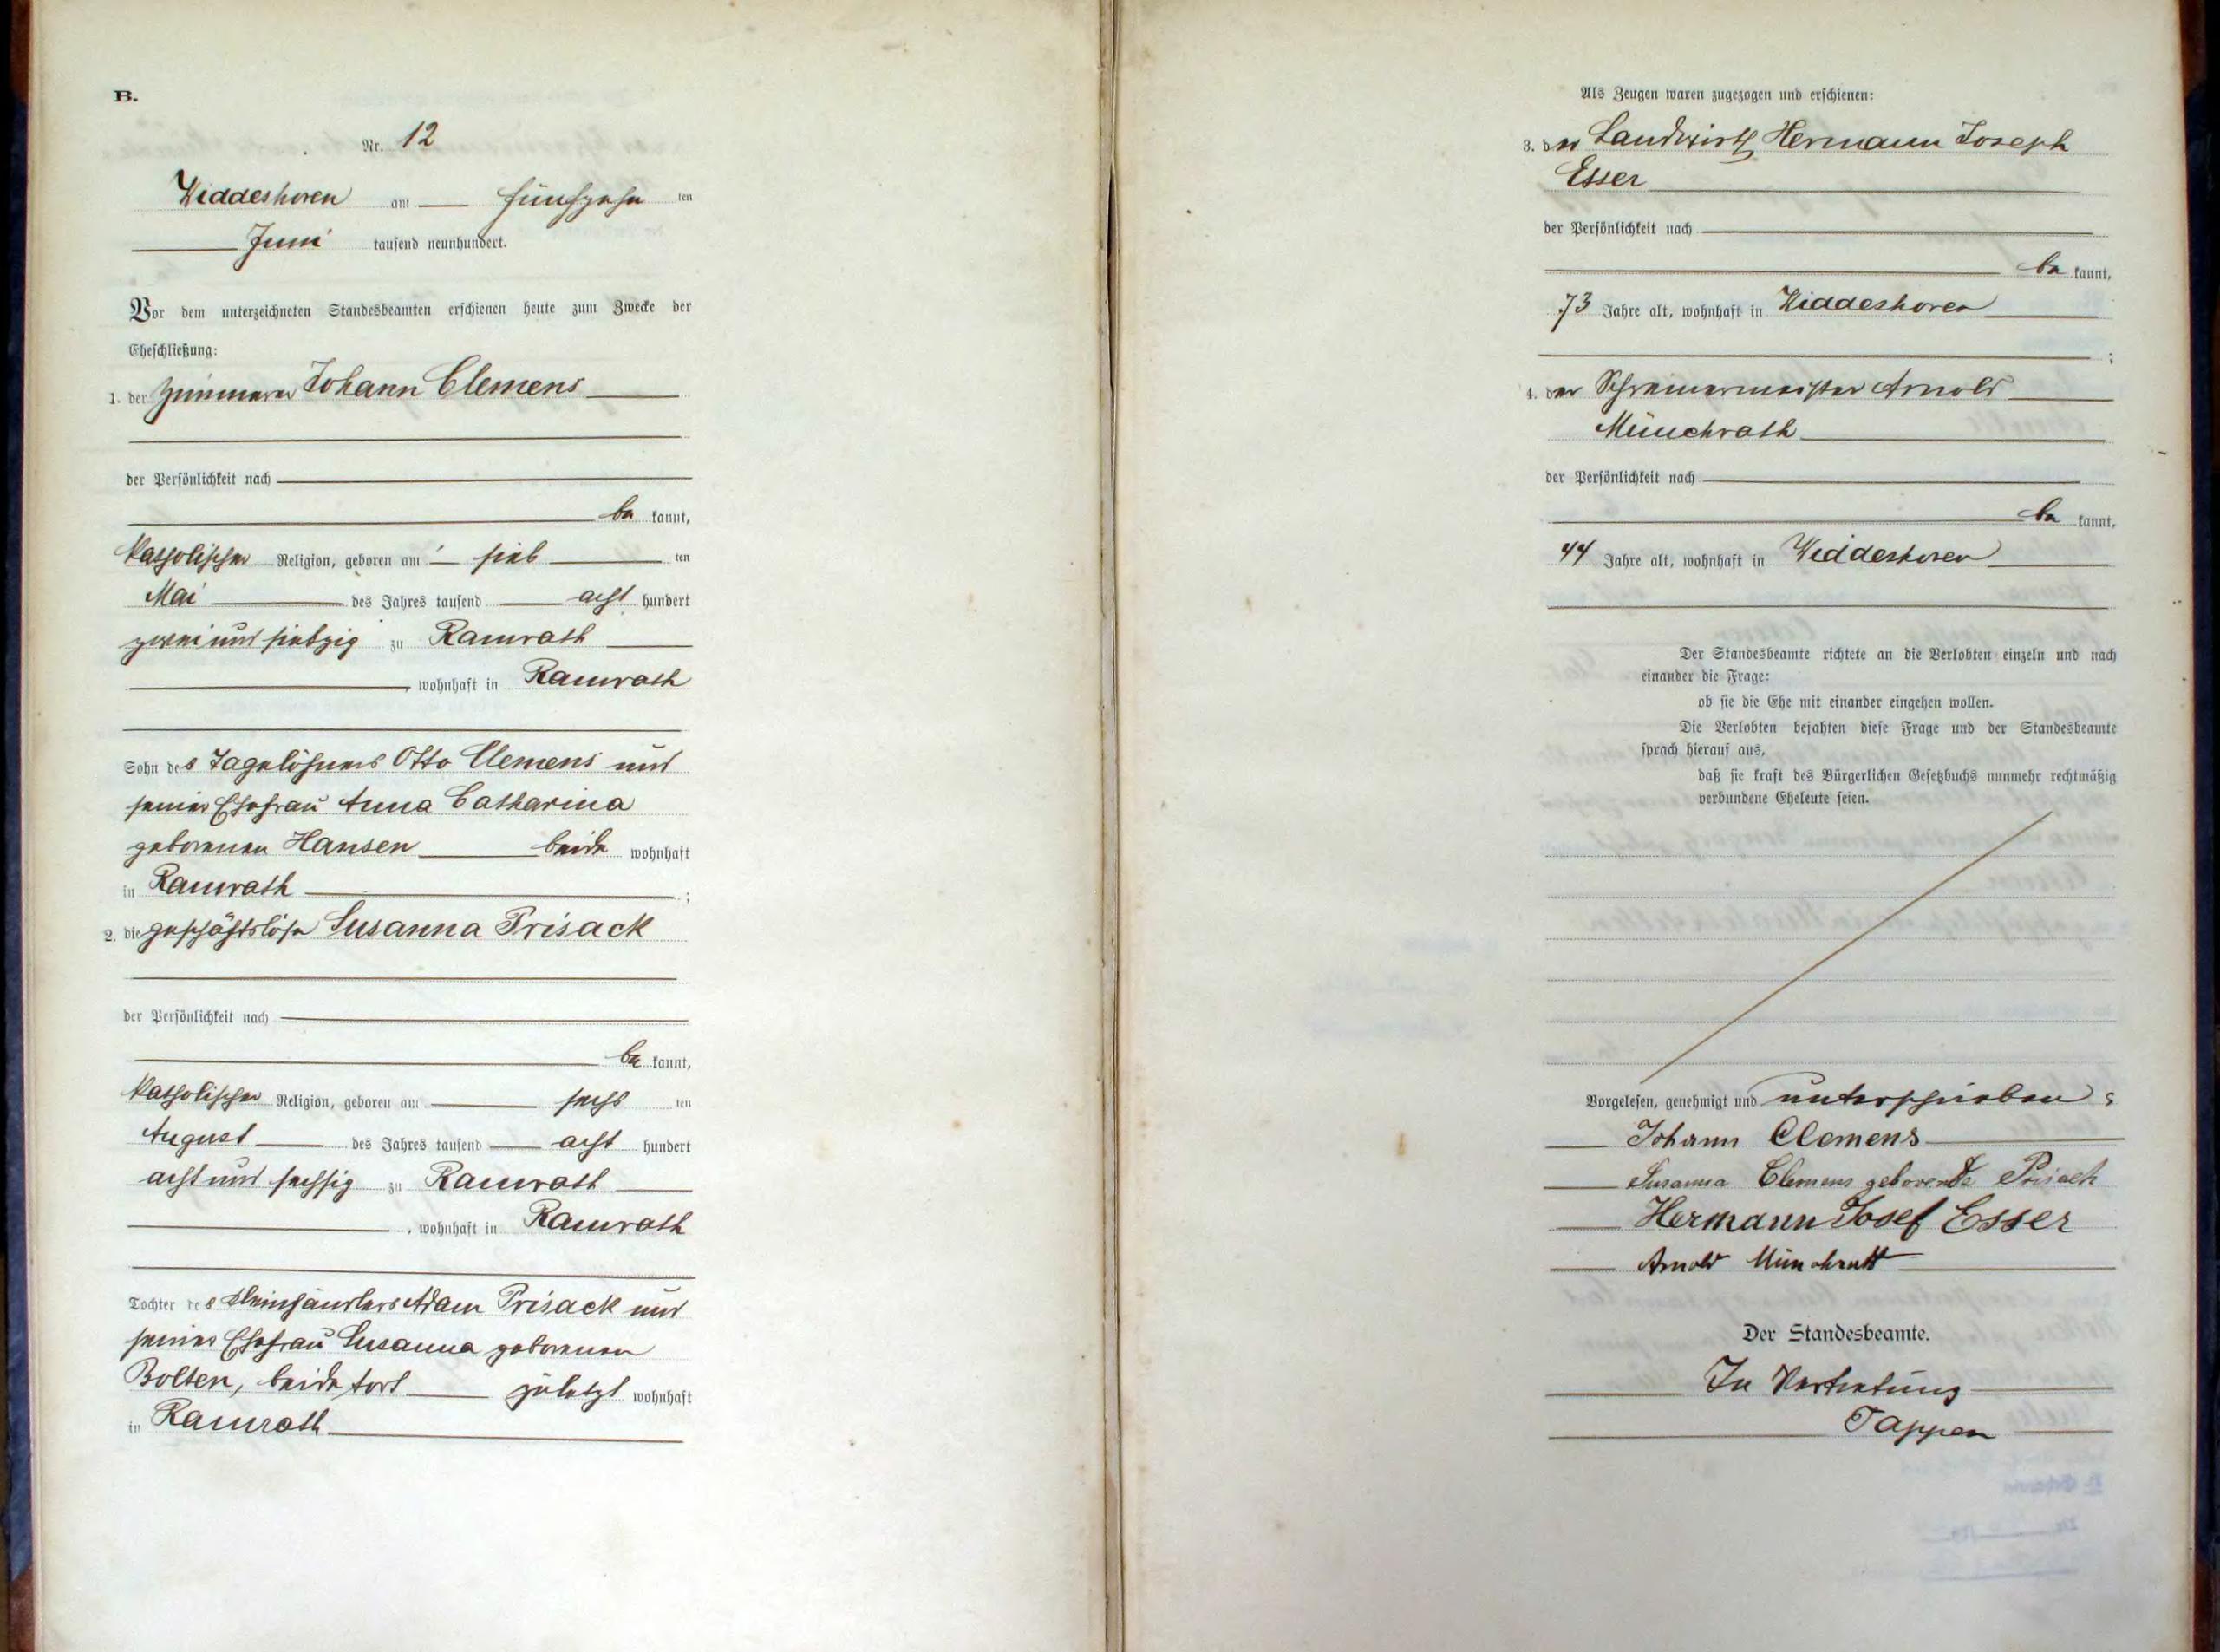 B.
Nr. 12
Widdeshoven am fünfzehn ten
Juni tausend neunhundert.
Vor dem unterzeichneten Standesbeamten erschienen heute zum Zwecke der
Eheschließung:
1. der Zimmerer Johann Clemens
der Persönlichkeit nach
be kannt,
katholischer Religion, geboren am sieb ten
Mai des Jahres tausend acht hundert
zwei und siebzig zu Ramrath
, wohnhaft in Ramrath
Sohn des Tagelöhners Otto Clemens und
seiner Ehefrau Anna Catharina
geborenen Hansen beide wohnhaft
in Ramrath ;
2. die geschäftslose Susanna Prisack
der Persönlichkeit nach
be kannt,
katholischer Religion, geboren am sechs ten
August des Jahres tausend acht hundert
acht und sechzig zu Ramrath
, wohnhaft in Ramrath
Tochter des Kleinhändlers Adam Prisack und
seiner Ehefrau Susanna geborenen
Bolten, beide tort zuletzt wohnhaft
in Ramrath
Als Zeugen waren zugezogen und erschienen:
3. der Landwirth Hermann Joseph
Esser
der Persönlichkeit nach
be kannt,
73 Jahre alt, wohnhaft in Widdeshoven
;
4. der Schreinermeister Arnold
Münchrath
der Persönlichkeit nach
be kannt,
44 Jahre alt, wohnhaft in Widdeshoven
Der Standesbeamte richtete an die Verlobten einzeln und nach
einander die Frage:
ob sie die Ehe mit einander eingehen wollen.
Die Verlobten bejahten diese Frage und der Standesbeamte
sprach hierauf aus,
daß sie kraft des Bürgerlichen Gesetzbuchs nunmehr rechtmäßig
verbundene Eheleute seien.
Vorgelesen, genehmigt und unterschrieben :
Johann Clemens
Susanna Clemens geborende Prisack
Hermann Josef Esser
Arnold Münchrath
Der Standesbeamte.
In Vertretung
Tappen